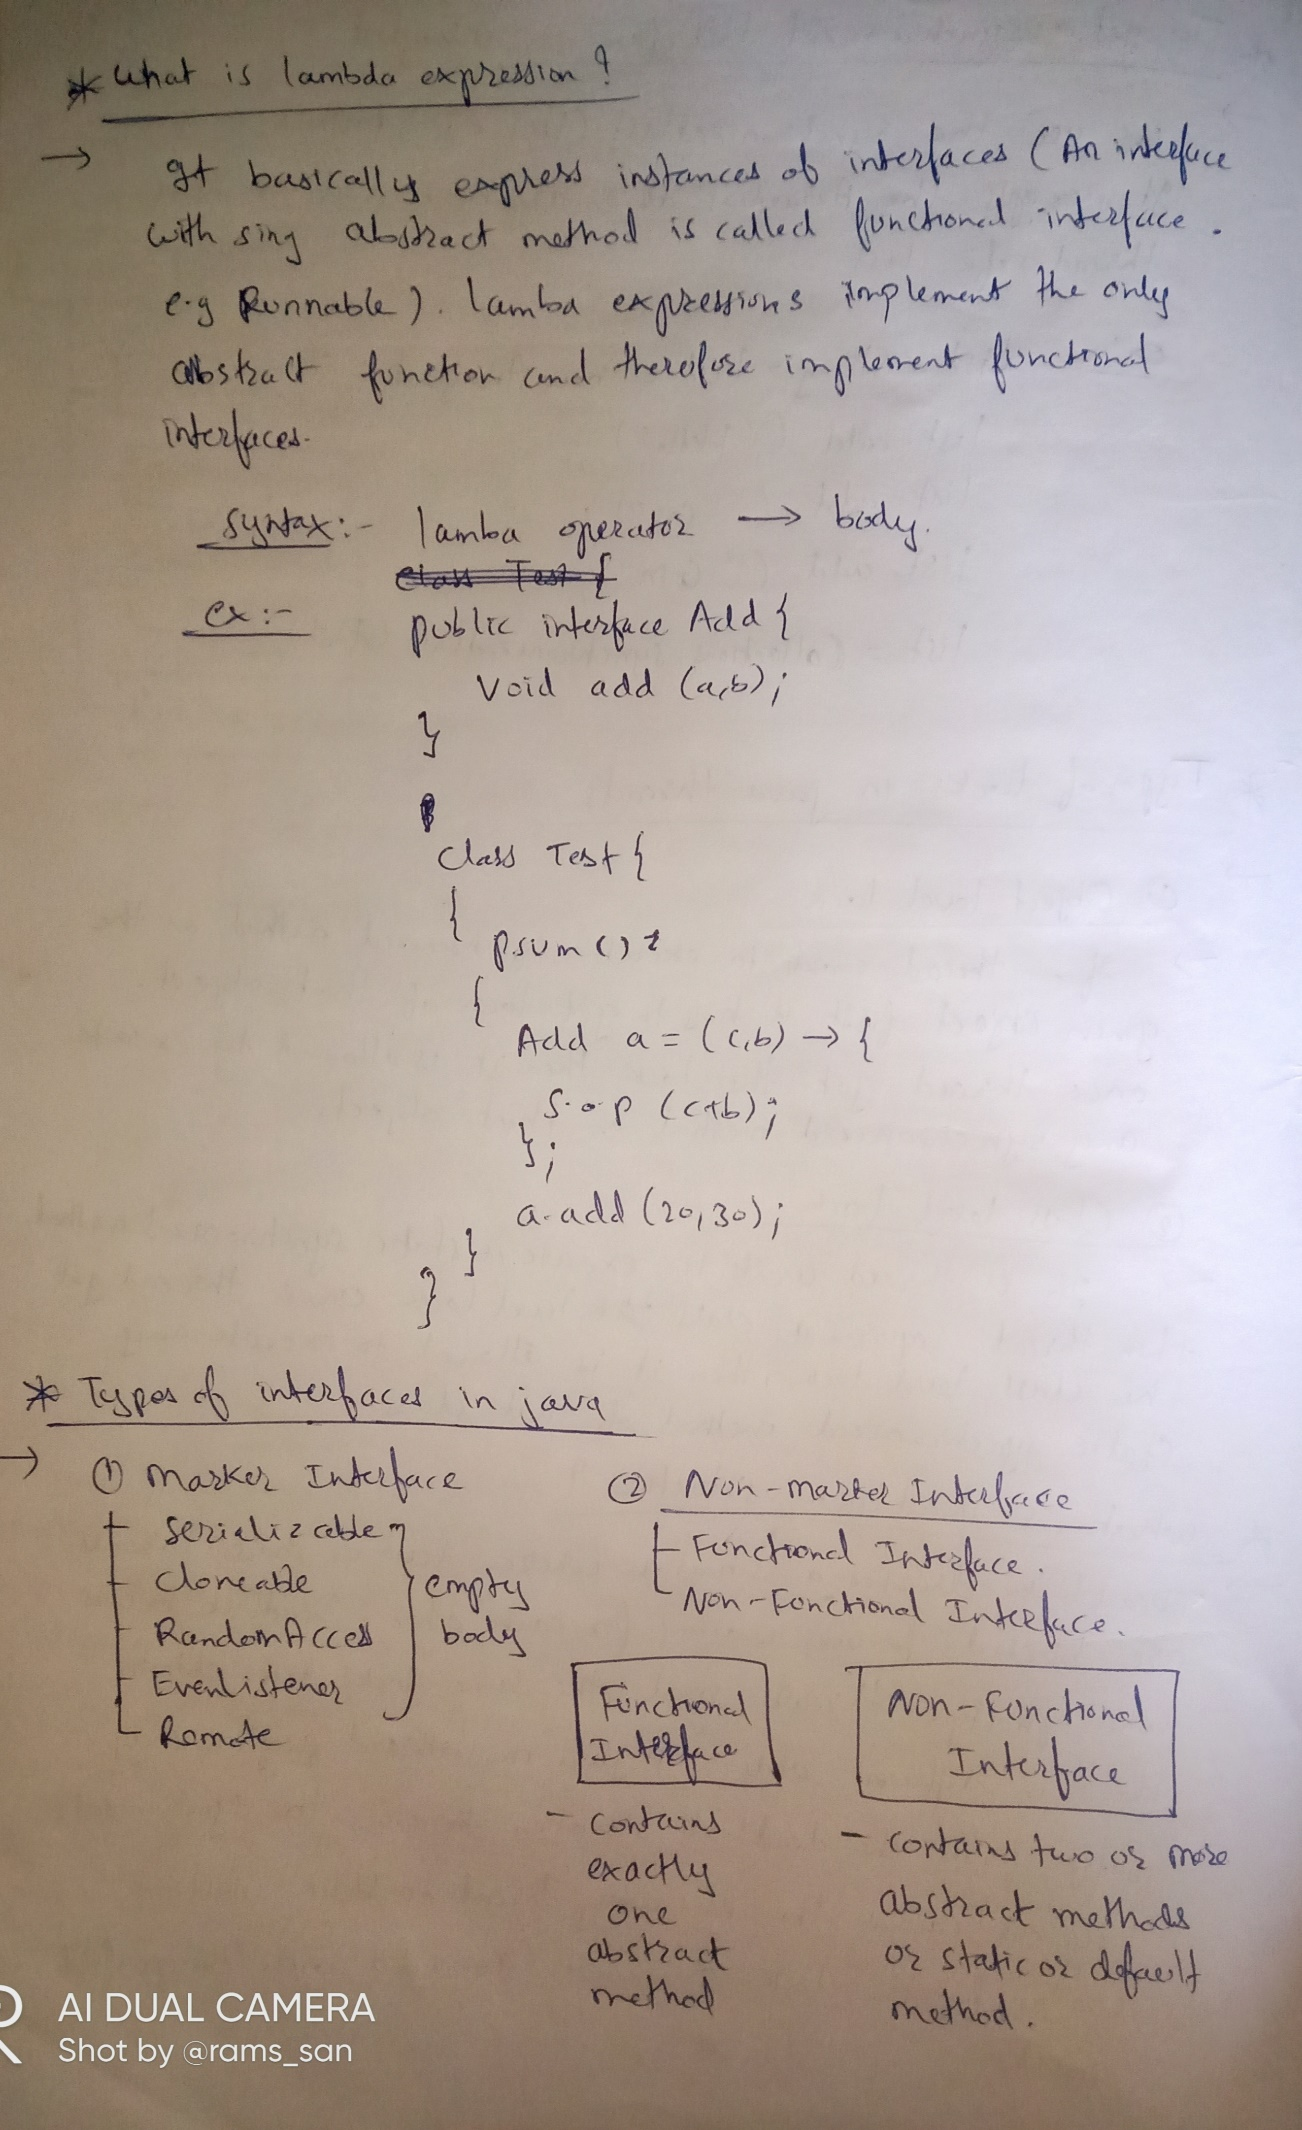 * What is lambda expression ?
→ It basically express instances of interfaces ( An interface
with sing abstract method is called functional interface .
e.g Runnable ). lamba expressions implement the only
abstract function and therefore implement functional
interfaces.
syntax:- lamba operator → body.
class Test {
ex :- public interface Add {
Void add (a,b) ;
}
class Test {
{
psvm ()
{
Add a = (c,b) → {
S.o.p (c+b) ;
} ;
a.add (20,30) ;
}
}
* Types of interfaces in java
→ ① Marker Interface
serializable
Cloneable
RandomAccess
EvenListener
Remote
} empty
body
② Non-marker Interface
Functional Interface .
Non-Functional Interface .
Functional
Interface
- contains
exactly
one
abstract
method
Non-Functional
Interface
- contains two or more
abstract methods
or static or default
method .
AI DUAL CAMERA
Shot by @rams_san